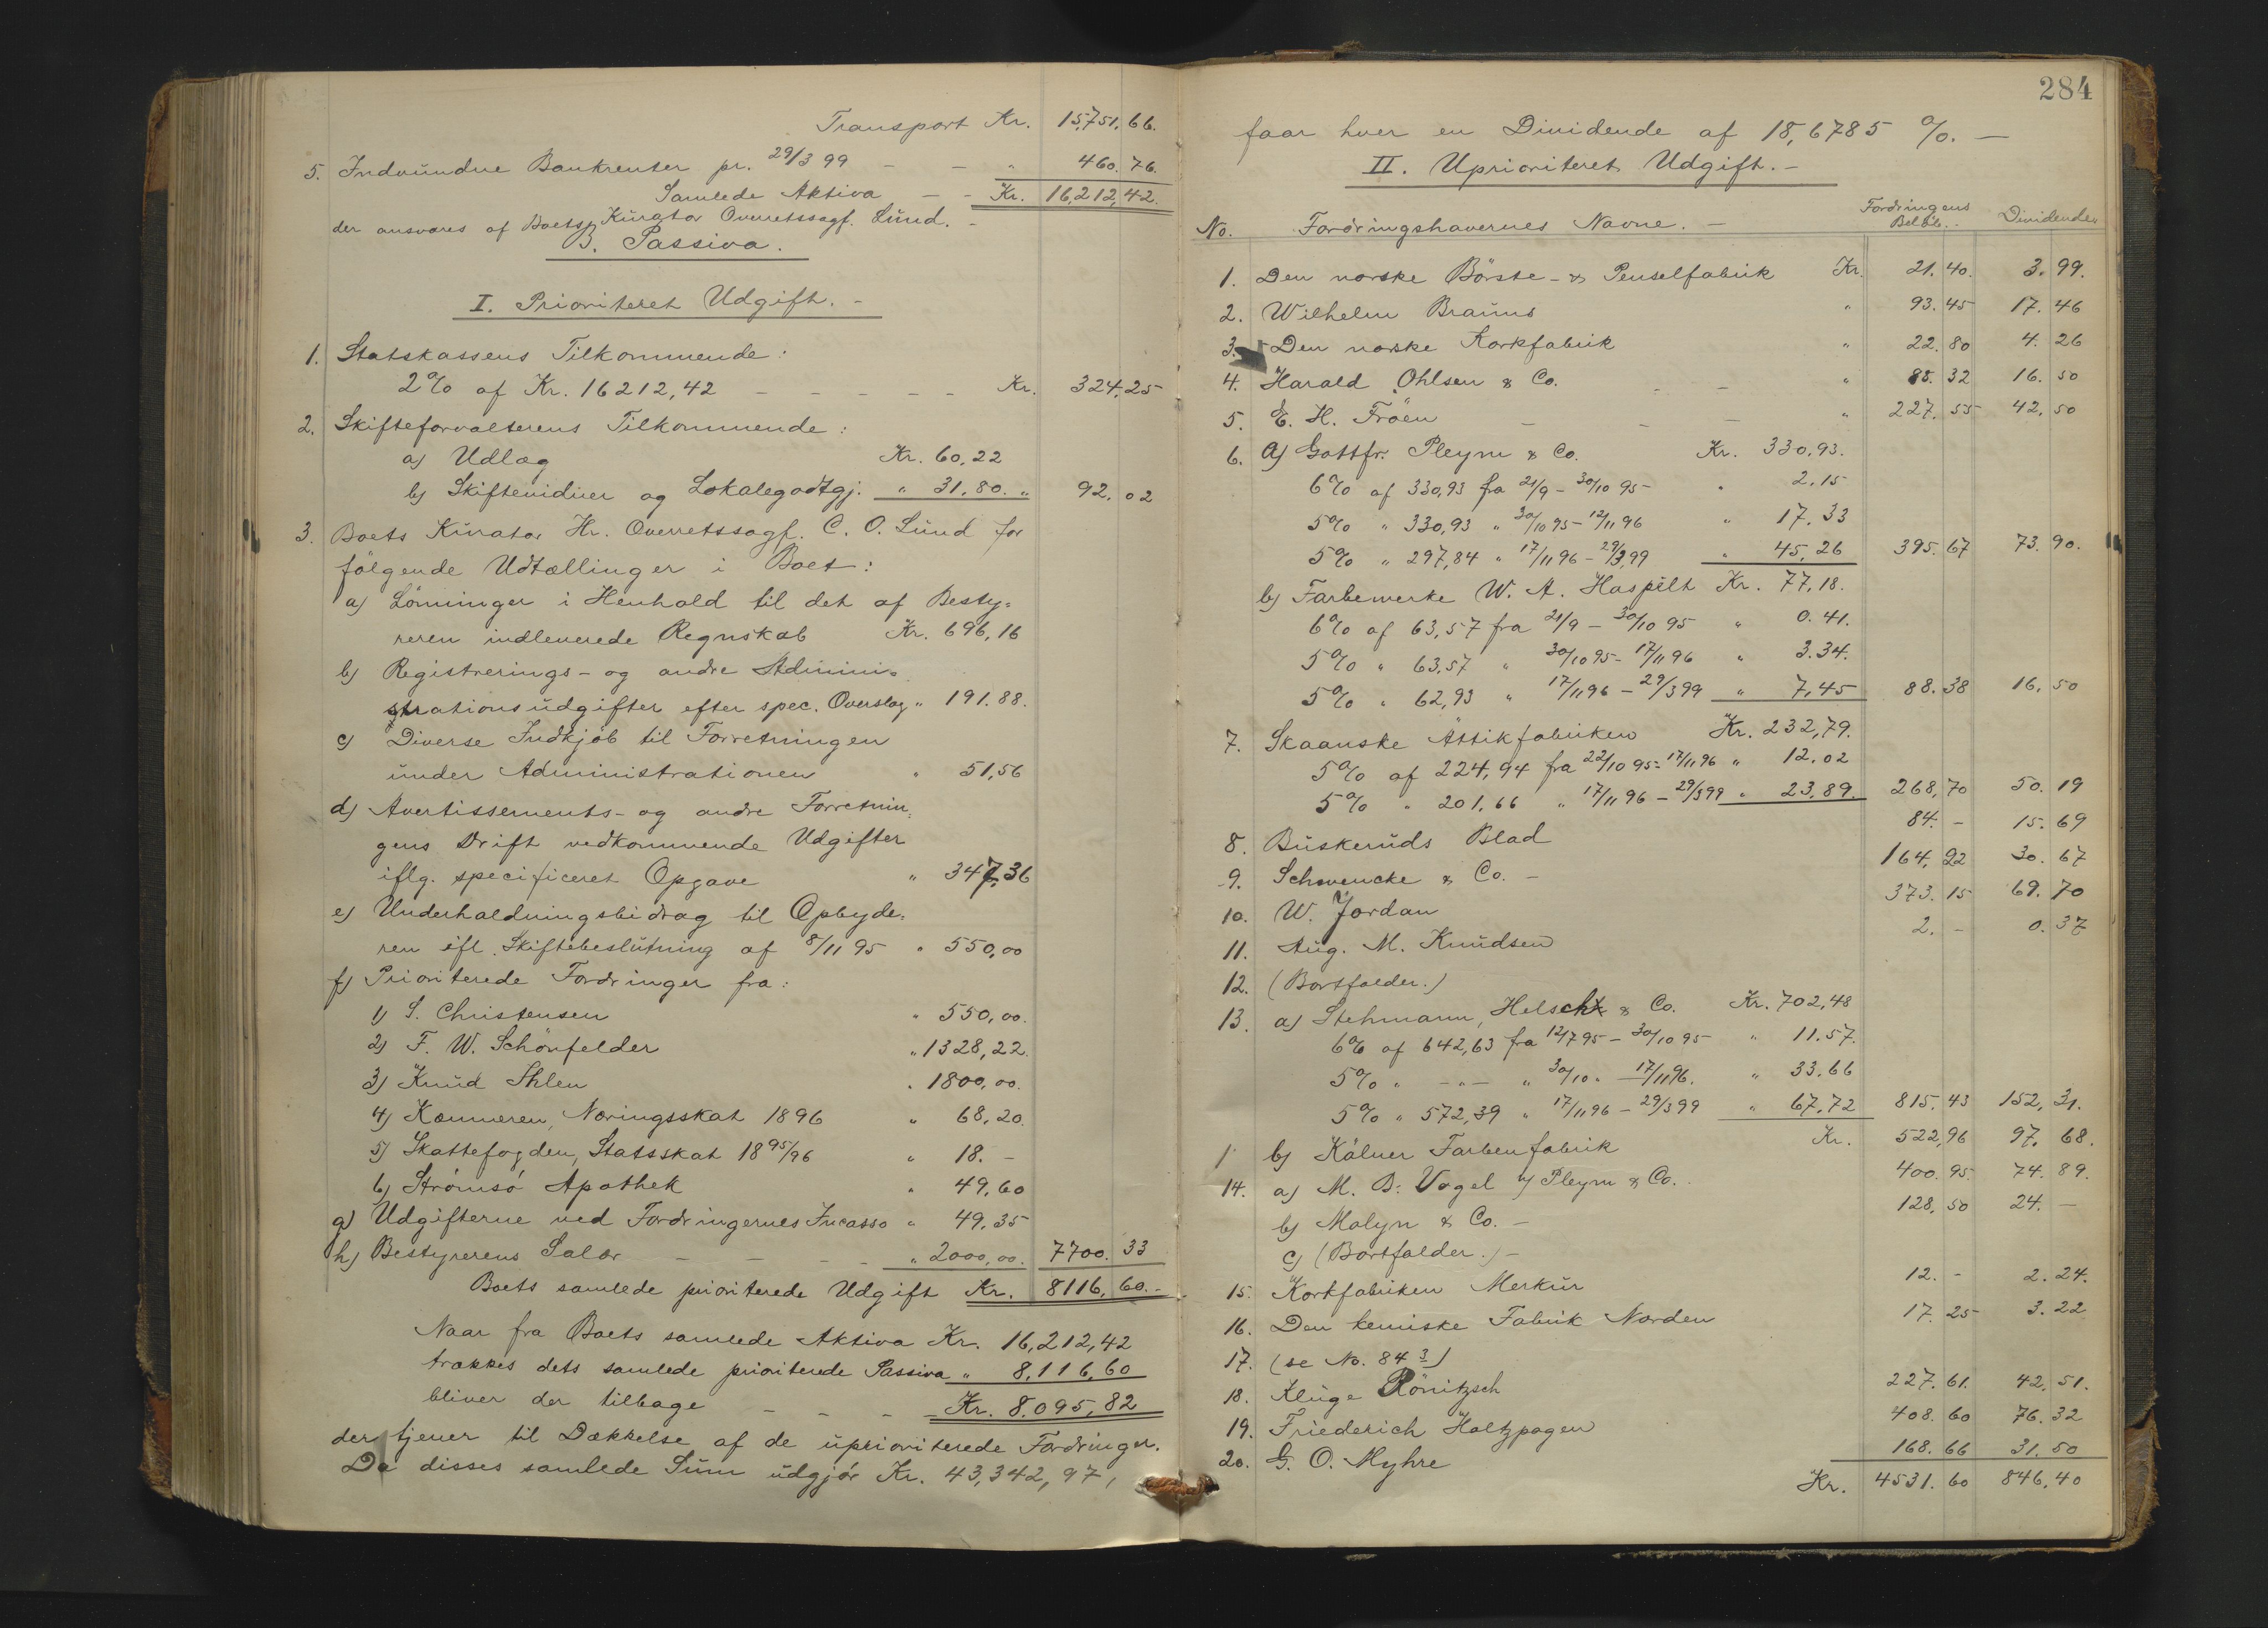 Transport Kr. 15,751.66.
5. Indvundne Bankrenter pr. 29/3 99 — — " 460.76.
Samlede Aktiva — — Kr. 16,212,42.
der ansvares af Boets Kurator Overretssagf. Lund. —
B. Passiva.
I. Prioriteret Udgift. —
1. Statskassens Tilkommende:
2% af Kr. 16212,42 — — — — — Kr. 324,25
2. Skifteforvalterens Tilkommende:
a) Udlæg Kr. 60,22
b) Skiftevidner og Lokalegodtgj. " 31.80. " 92.02
3. Boets Kurator Hr. Overretssagf. C. O. Lund for
følgende Udtællinger i Boet:
a) Lønninger i Henhold til det af Besty=
reren indleverede Regnskab Kr. 696,16
b) Registrerings- og andre Admini=
strationsudgifter efter spec. Overslag " 191.88.
c) Diverse Indkjøb til Forretningen
under Administrationen " 51,56
d) Avertissements- og andre Forretnin=
gens Drift vedkommende Udgifter
iflg. specificeret Opgave " 347,36
e) Underholdningsbidrag til Opbyde=
ren ifl. Skiftebeslutning af 8/11 95 " 550,00
f) Prioriterede Fordringer fra:
1) S. Christensen " 550,00.
2) F. W. Schönfelder " 1328,22.
3) Knud Ihlen " 1800,00.
4) Kæmneren, Næringsskat 1896 " 68,20.
5) Skattefogden, Statsskat 1895/96 " 18. —
6) Strømsø Apothek " 49,60
g) Udgifterne ved Fordringernes Incasso " 49.35
h) Bestyrerens Salær — — — — " 2000,00. 7700.33
Boets samlede prioriterede Udgift Kr. 8116,60. —
Naar fra Boets samlede Aktiva Kr. 16,212,42
trækkes dets samlede prioriterede Passiva " 8,116,60
bliver der tilbage — — — — Kr. 8.095,82
der tjener til Dækkelse af de uprioriterede Fordringer.
Da disses samlede Sum udgjør Kr. 43,342,97,
284
faar hver en Dividende af 18,6785 %. —
II. Uprioriteret Udgift. —
No. Fordringshavernes Navne. — Fordringens Beløb. Dividende.
1. Den norske Börste- & Penselfabrik Kr. 21.40. 3.99.
2. Wilhelm Brauns " 93.45 17.46
3. Den norske Korkfabrik " 22.80 4.26
4. Harald Ohlsen & Co. — — " 88.32 16.50
5. E. H. Fröen — — — " 227.55 42,50
6. a) Gottfr. Pleym & Co. Kr. 330,93.
6% af 330,93 fra 21/9 - 30/10 95 — " 2,15
5% " 330,93 " 30/10 95 - 12/11 96 " 17.33
5% " 297,84 " 17/11 96 - 29/3 99 " 45,26 395.67 73.90.
b) Farbewerke W. A. Hospelt Kr. 77,18.
6% af 63,57 fra 21/9 - 30/10 95 " 0.41.
5% " 63.57 " 30/10 95 - 17/11 96 " 3.34.
5% " 62,93 " 17/11 96 - 29/3 99 " 7,45 88.38 16,50
7. Skaanske Ättikfabriken Kr. 232,79.
5% af 224,94 fra 22/10 95 - 17/11 96 " 12.02
5% " 201.66 " 17/11 96 - 29/3 99 " 23.89. 268,70 50.19
8. Buskeruds Blad 84. — 15.69
9. Schwencke & Co. — 164,22 30.67
10. W. Jordan 373.15 69.70
11. Aug. M. Knudsen 2. — 0.37
12. (Bortfalder.)
13. a) Stehmann, Helsch & Co. Kr. 702,48
6% af 642,63 fra 12/7 95 - 30/10 95 " 11.57.
5% " — " — " 30/10 " - 17/11 96. " 33.66
5% " 572,39 " 17/11 96 - 29/3 99 " 67,72 815.43 152,31.
b) Kölner Farbenfabrik Kr. 522,96 97.68.
14. a) M. B. Vogel v/ Pleym & Co. 400.95. 74.89.
b) Malyn & Co. — 128,50 24. —
c) (Bortfalder.) —
15. Korkfabriken Merkur 12. — 2.24.
16. Den kemiske Fabrik Norden 17.25 3.22
17. (se No. 84 3)
18. Kluge Rönitzsch 227.61. 42,51.
19. Friederich Holtzpagen 408.60 76.32
20. G. O. Myhre 168.66 31.50
Kr. 4531.60 846,40